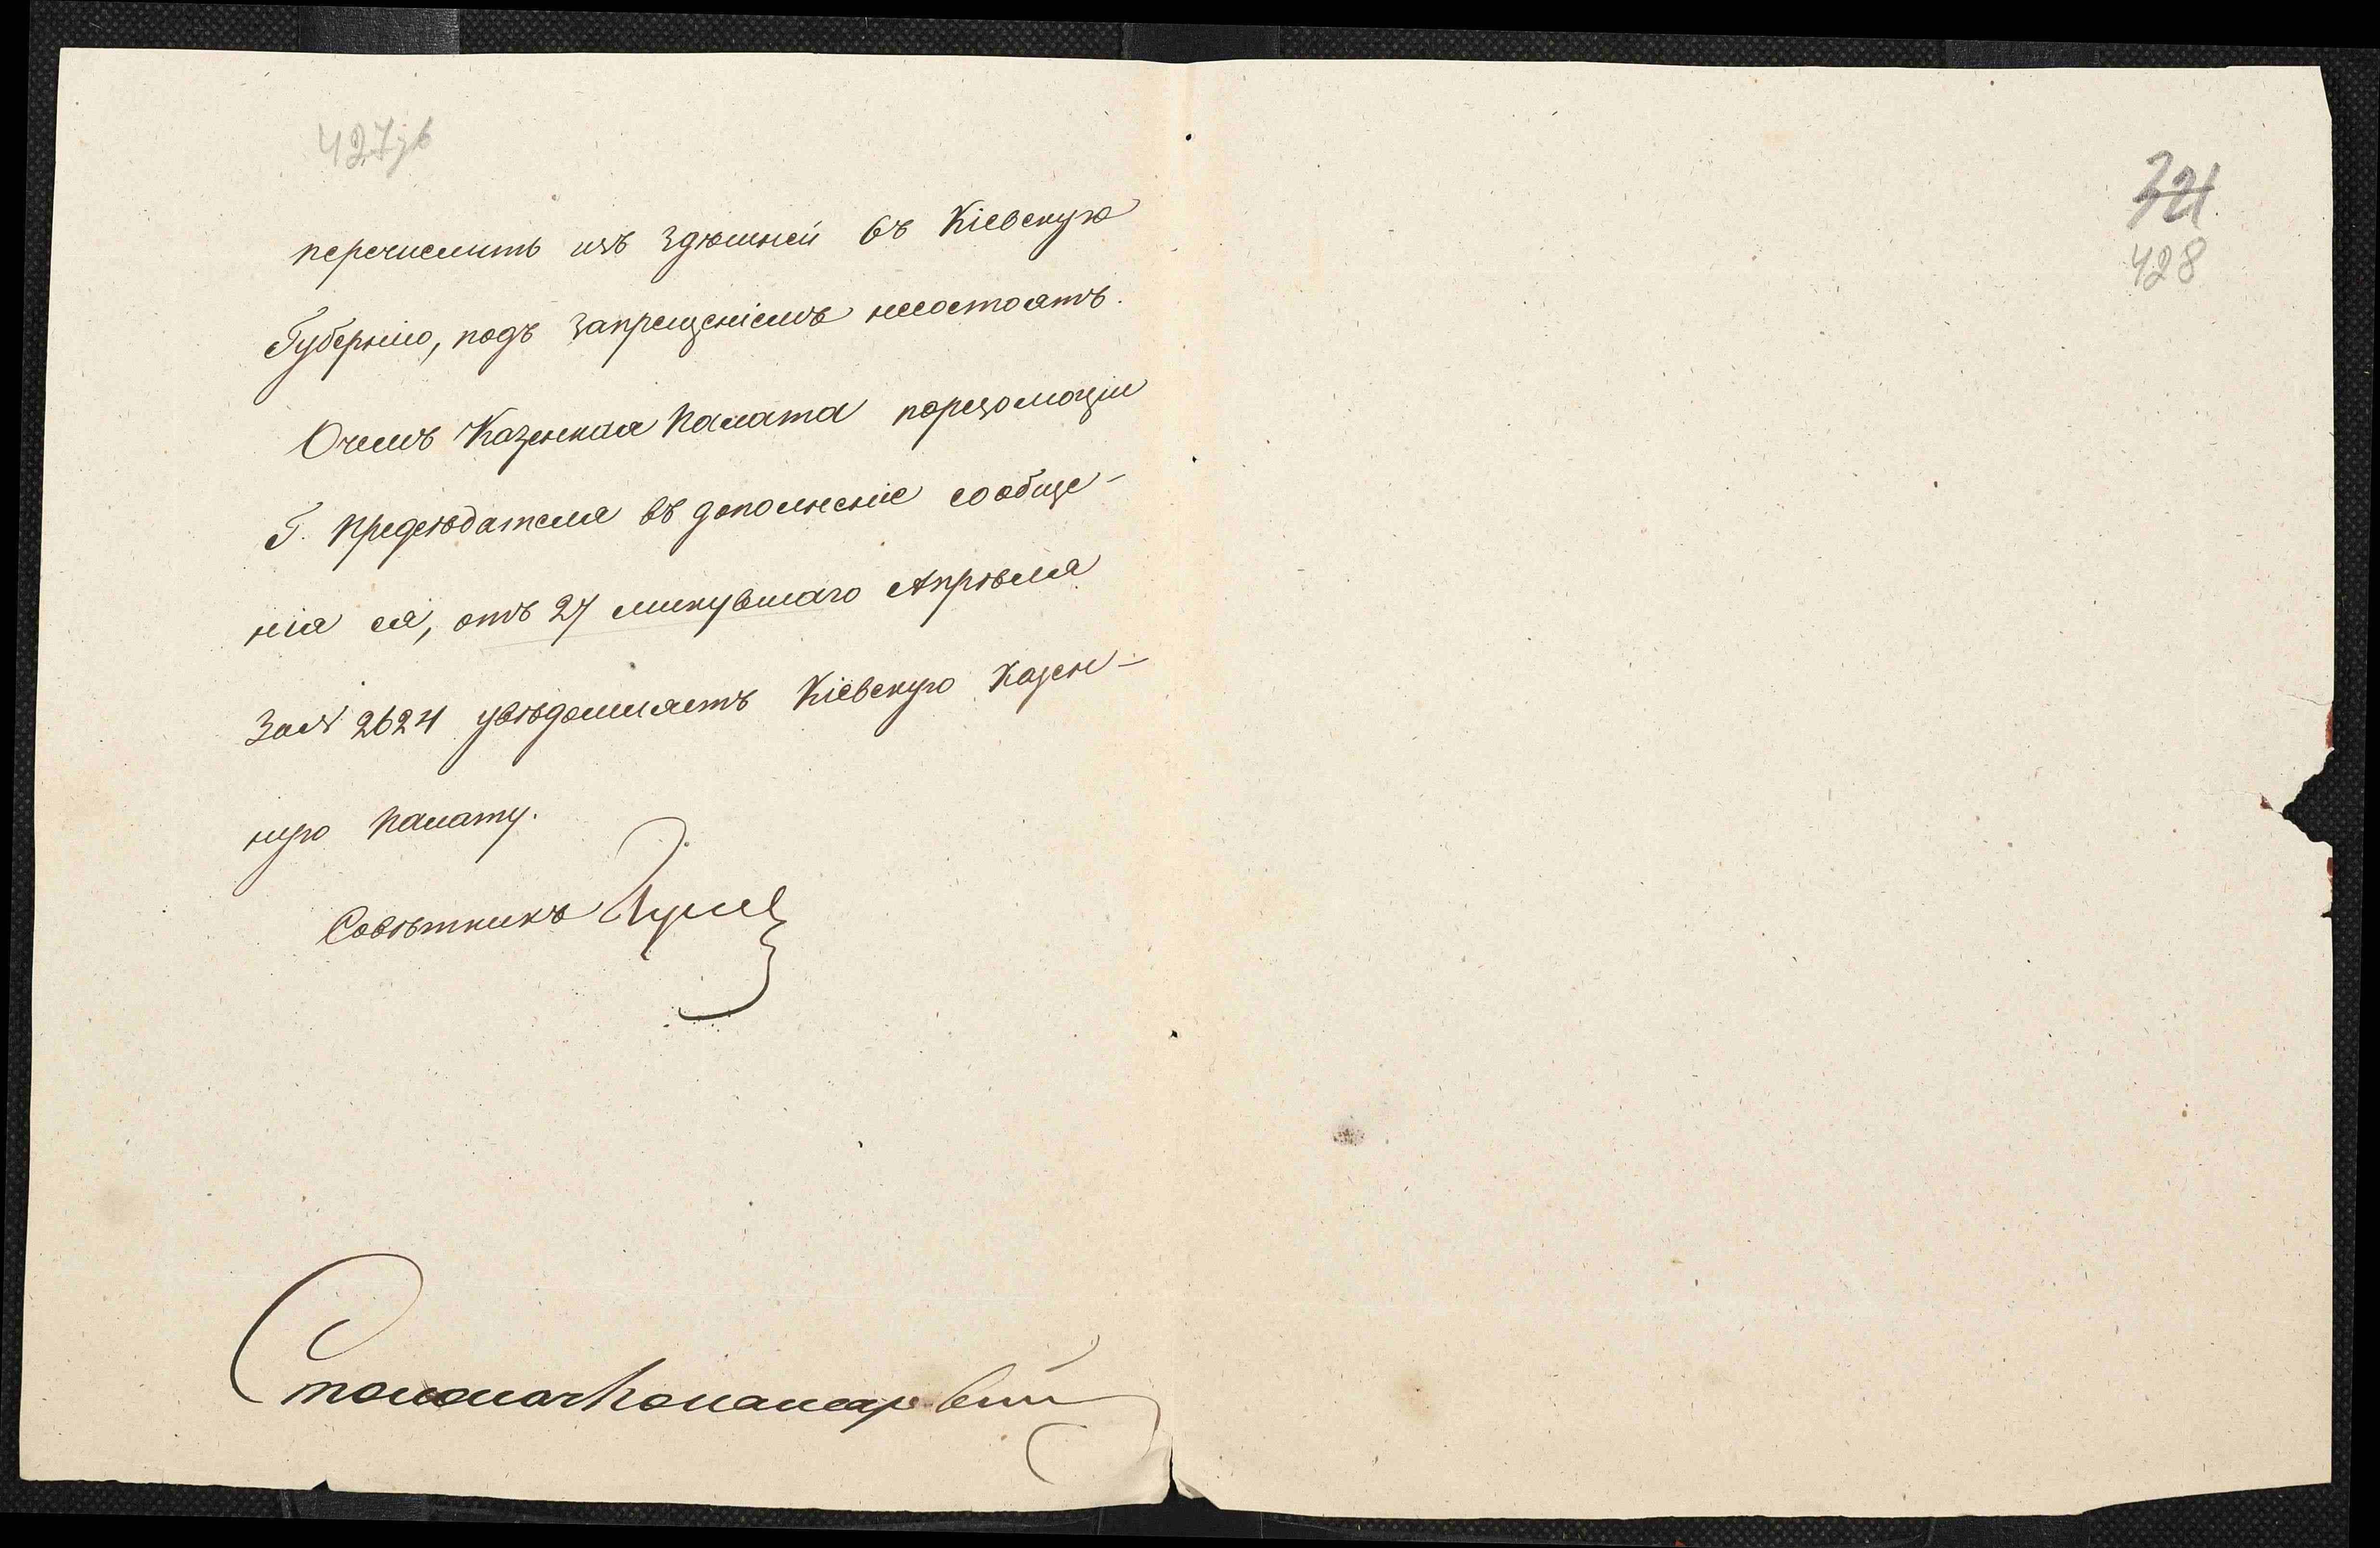 427зв
перечислить изъ здѣшней въ Кіевскую
Губернію, подъ запрещеніемъ несостоятъ.
Очемъ Казенная Палата порезолюціи
Г. Предсѣдателя въ дополненіе сообще-
нія ея, отъ 27 минувшаго Апрѣля
За № 2624 увѣдомляетъ Кіевскую Казен-
ную Палату.
Совѣтникъ
Столоначальник
321
428